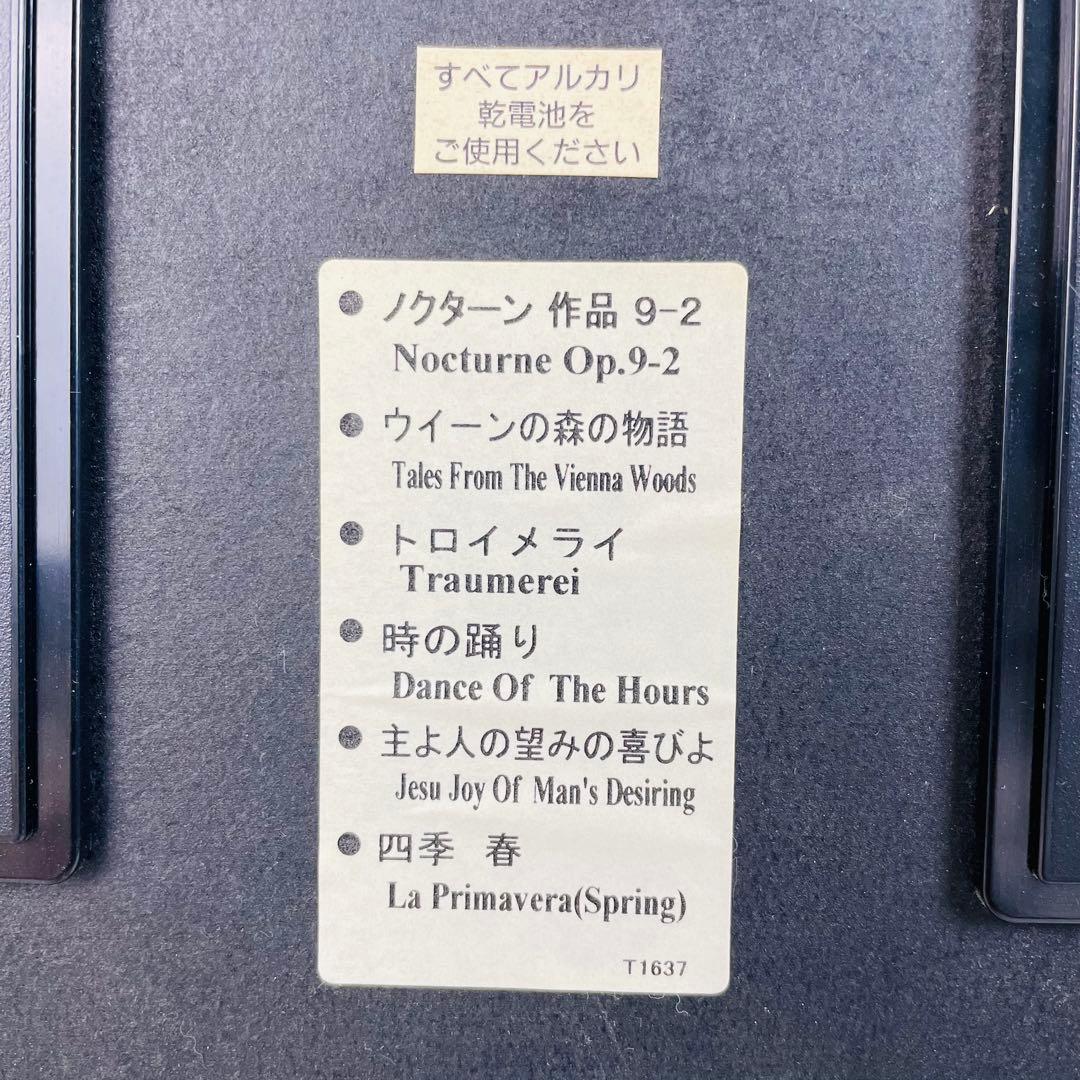 すべてアルカリ
乾電池を
ご使用ください
● ノクターン 作品 9-2
Nocturne Op.9-2
● ウイーンの森の物語
Tales From The Vienna Woods
● トロイメライ
Traumerei
● 時の踊り
Dance Of The Hours
● 主よ人の望みの喜びよ
Jesu Joy Of Man's Desiring
● 四季 春
La Primavera(Spring)
T1637